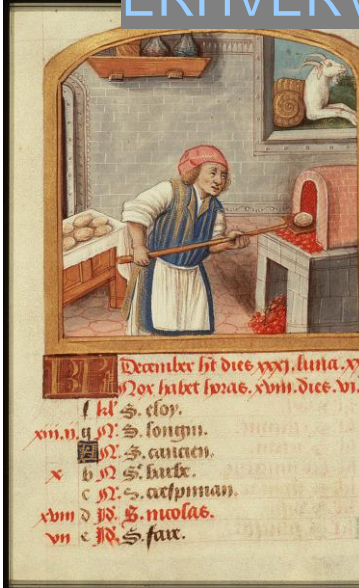 KL December ht dies xxxi. luna. xx
Nox habet horas. xviii. dies. vi.
f kl' S. eloy.
xiii. ii. g N. S. longin.
A N. S. caucien.
x b N S. barbe.
c N. S. crespinian.
xviii d N. S. nicolas.
vii e N. S. fare.